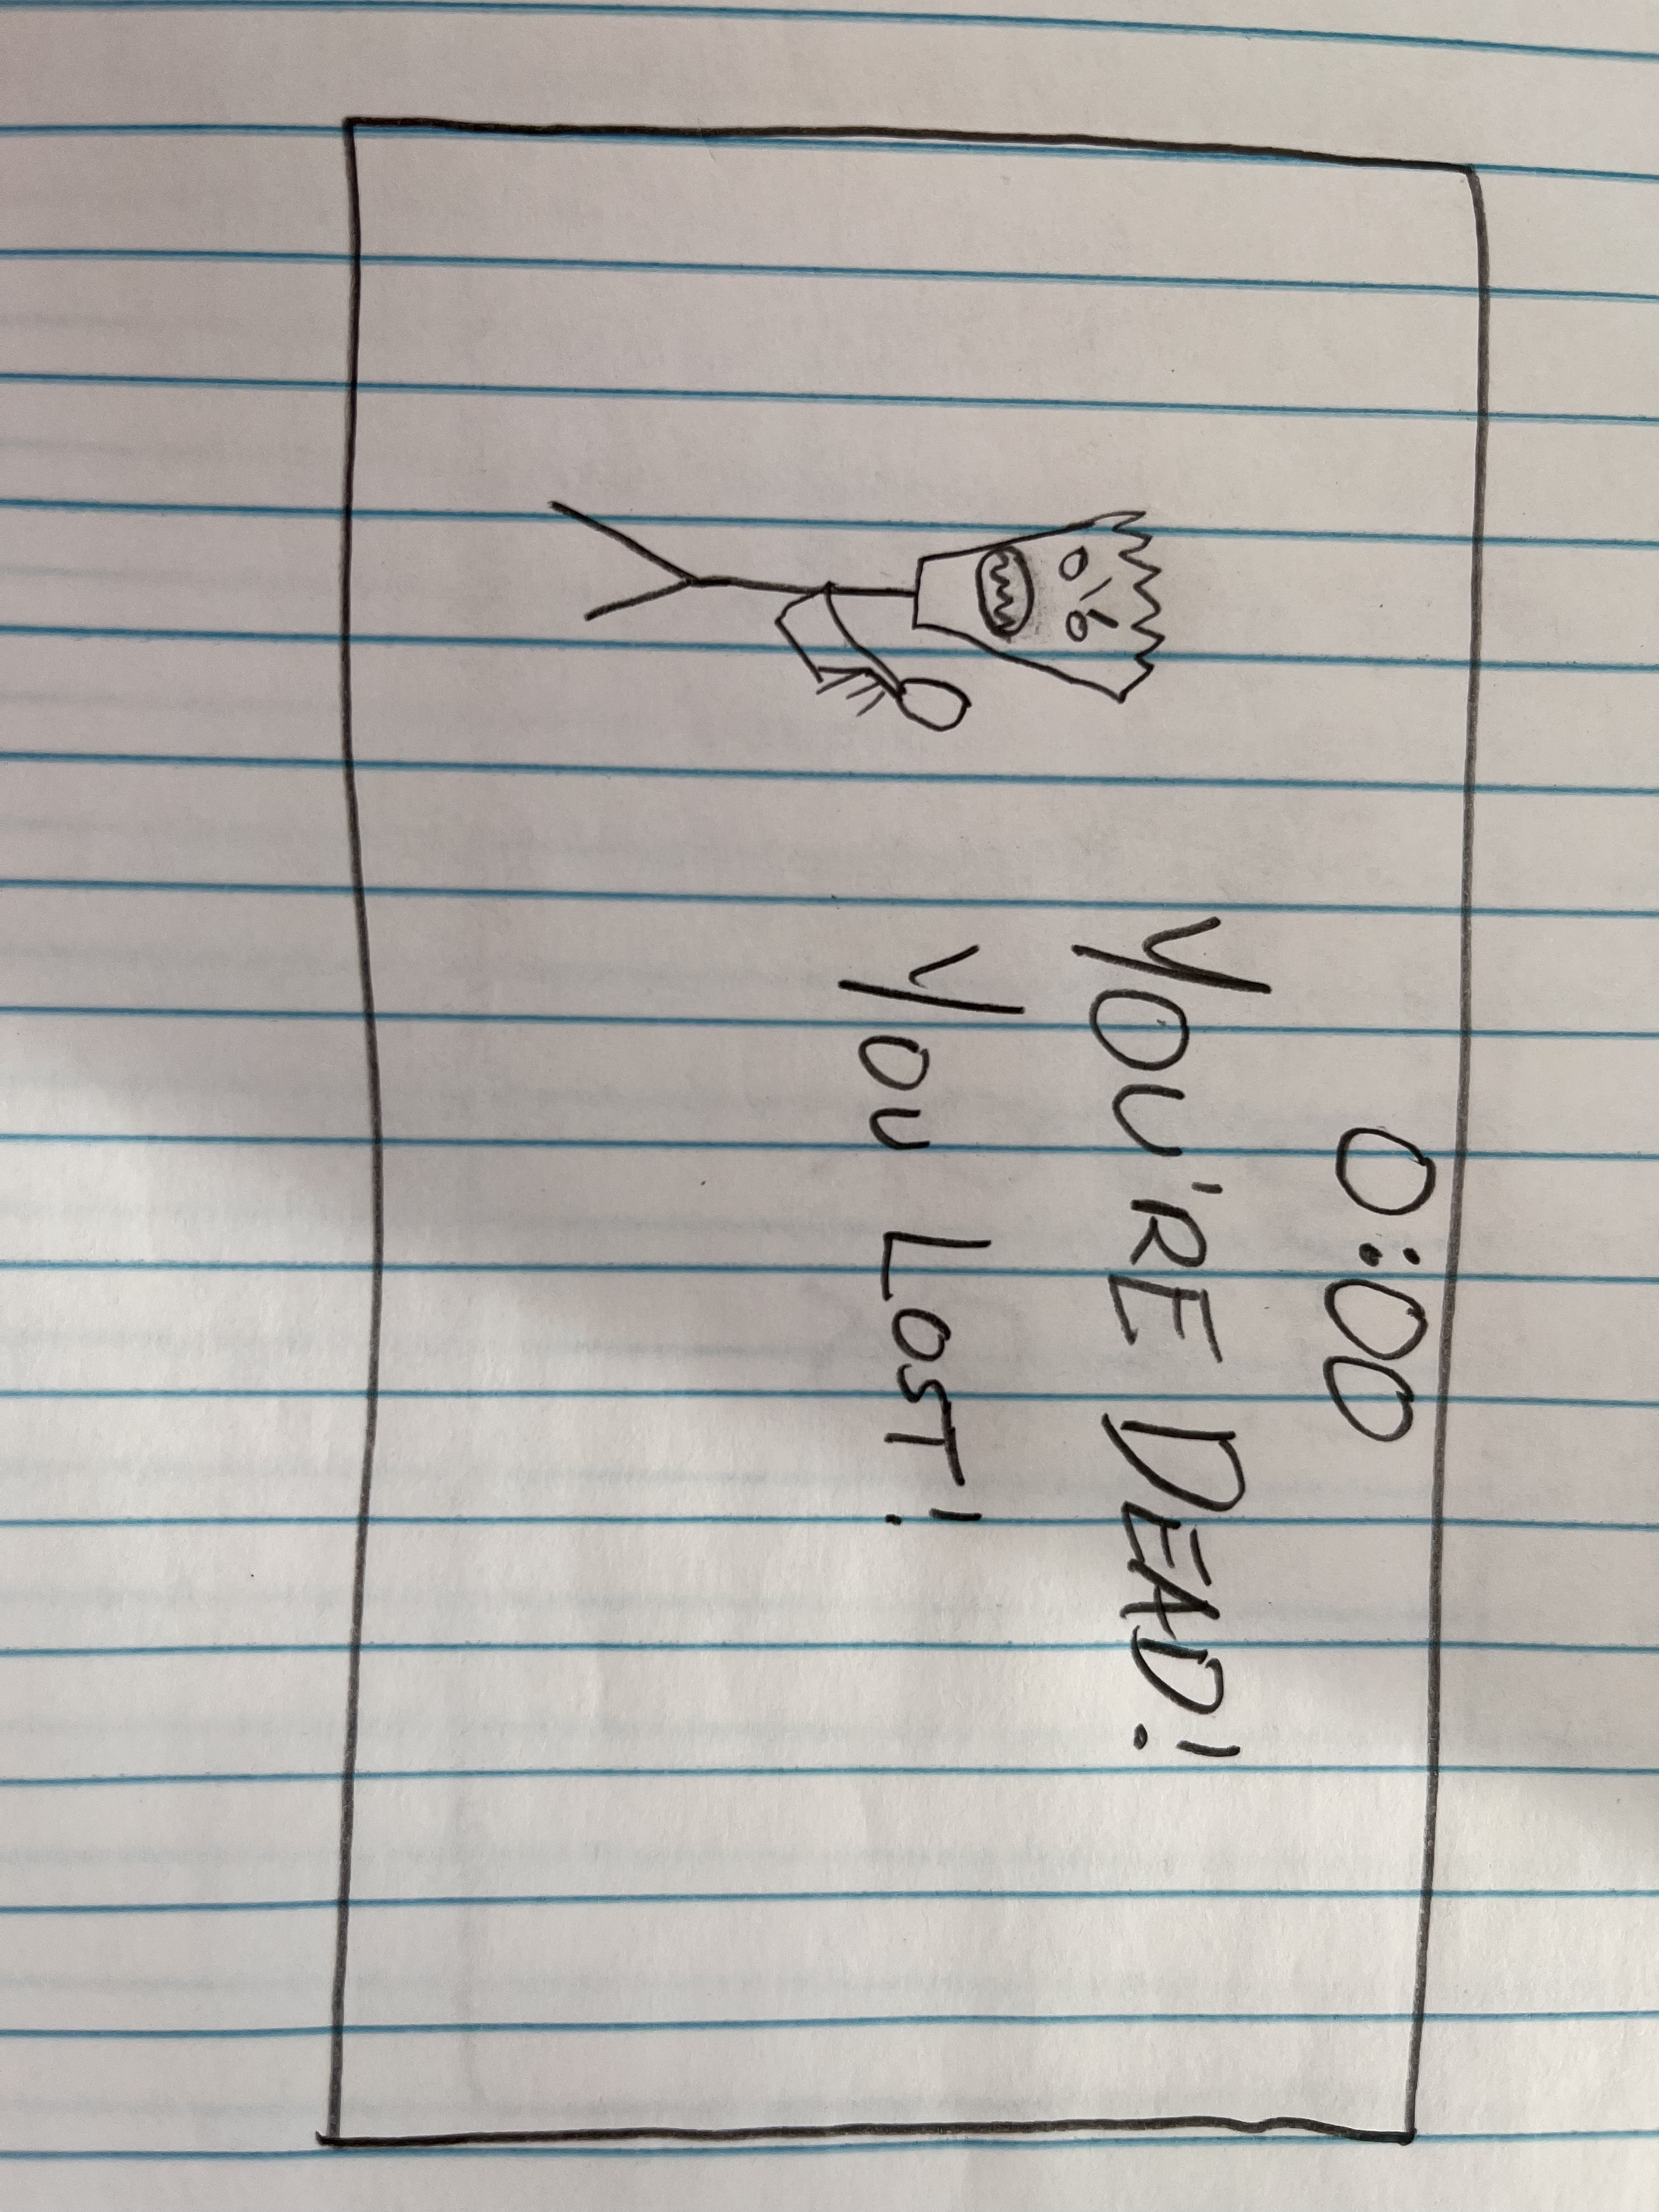 0:00
YOU'RE DEAD!
YOU LOST!